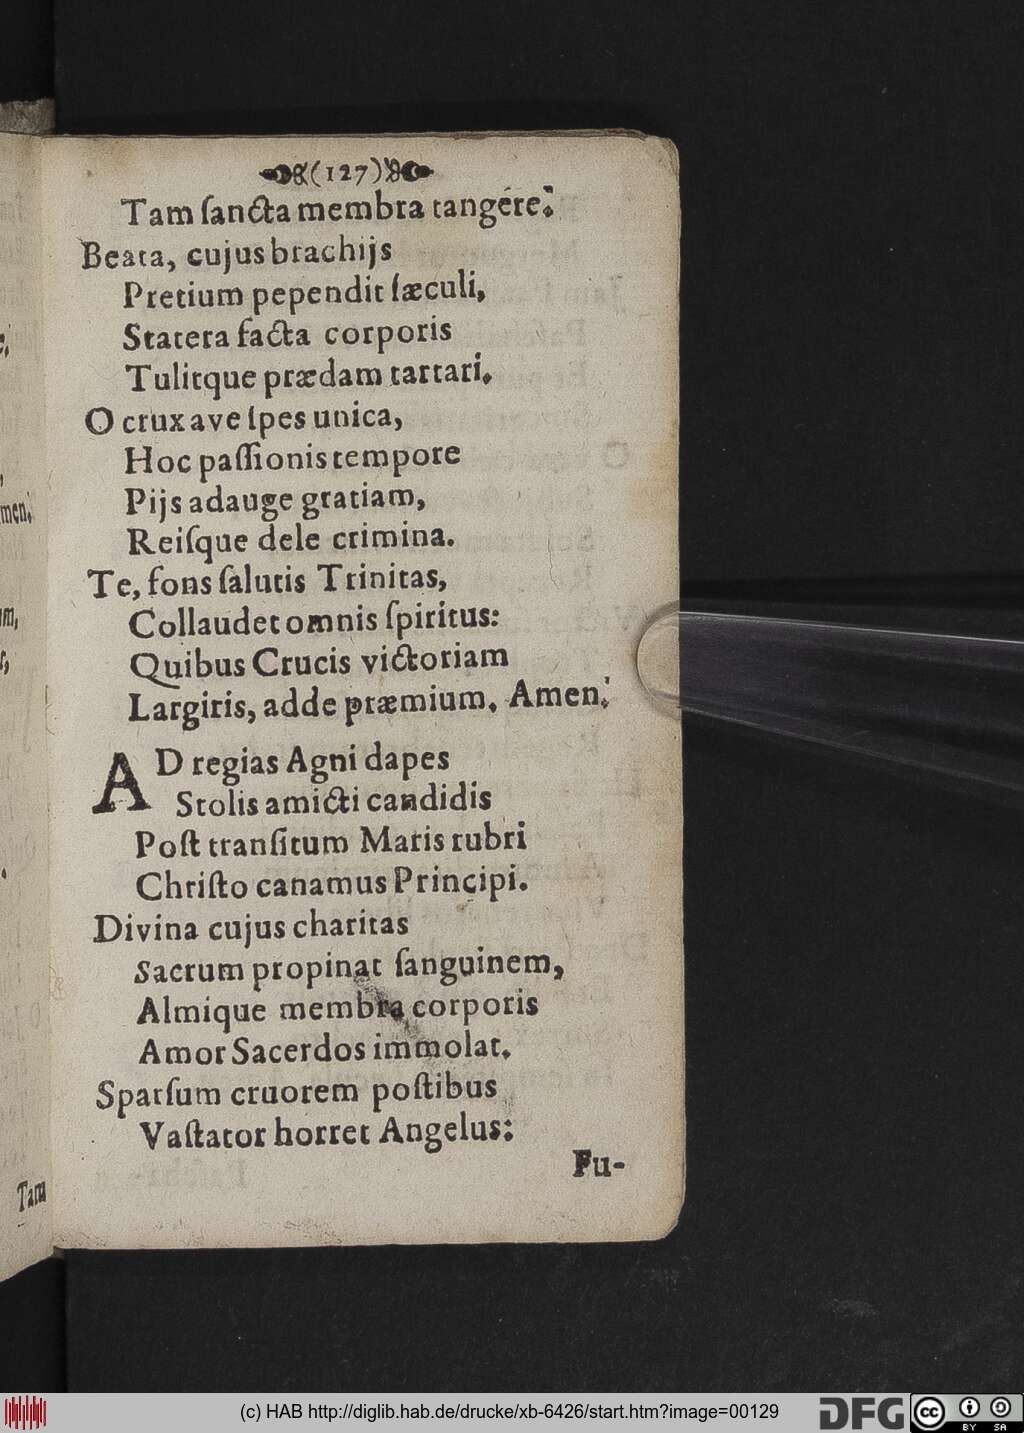 (127)
Tam ſancta membra tangere.
Beata, cujus brachijs
Pretium pependit ſæculi,
Statera facta corporis
Tulitque prædam tartari.
O crux ave ſpes unica,
Hoc paſſionis tempore
Pijs adauge gratiam,
Reiſque dele crimina.
Te, fons ſalutis Trinitas,
Collaudet omnis ſpiritus:
Quibus Crucis victoriam
Largiris, adde præmium. Amen.
AD regias Agni dapes
Stolis amicti candidis
Poſt tranſitum Maris rubri
Chriſto canamus Principi.
Divina cujus charitas
Sacrum propinat ſanguinem,
Almique membra corporis
Amor Sacerdos immolat.
Sparſum cruorem poſtibus
Vaſtator horret Angelus:
Fu-
men.
Tam
(c) HAB http://diglib.hab.de/drucke/xb-6426/start.htm?image=00129
DFG
cc
BY SA